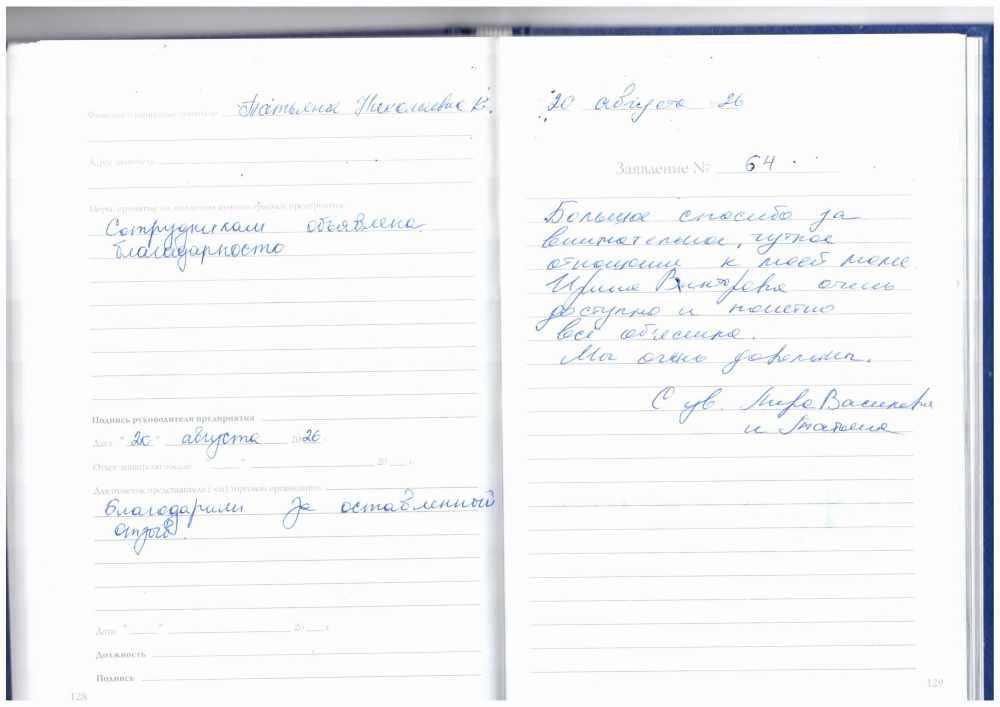 Фамилия и инициалы заявителя Татьяна Николаевна К.
Адрес заявителя
Меры, принятые по заявлению администрацией предприятия
Сотрудникам объявлена
благодарность
Подпись руководителя предприятия
Дата "20" августа 2026
Ответ заявителю послан "___" ___ 20 ___ г.
Для отметок представителя (-ей) торговой организации
Благодарили за оставленный
отзыв.
Дата "___" ___ 20 ___ г.
Должность
Подпись
128
20 августа 26
Заявление № 64
Большое спасибо за
внимательное, чуткое
отношение к моей маме
Ирина Викторовна очень
доступно и понятно
все объяснила.
Мы очень довольны.
С ув. Лира Васильевна
и Татьяна
129